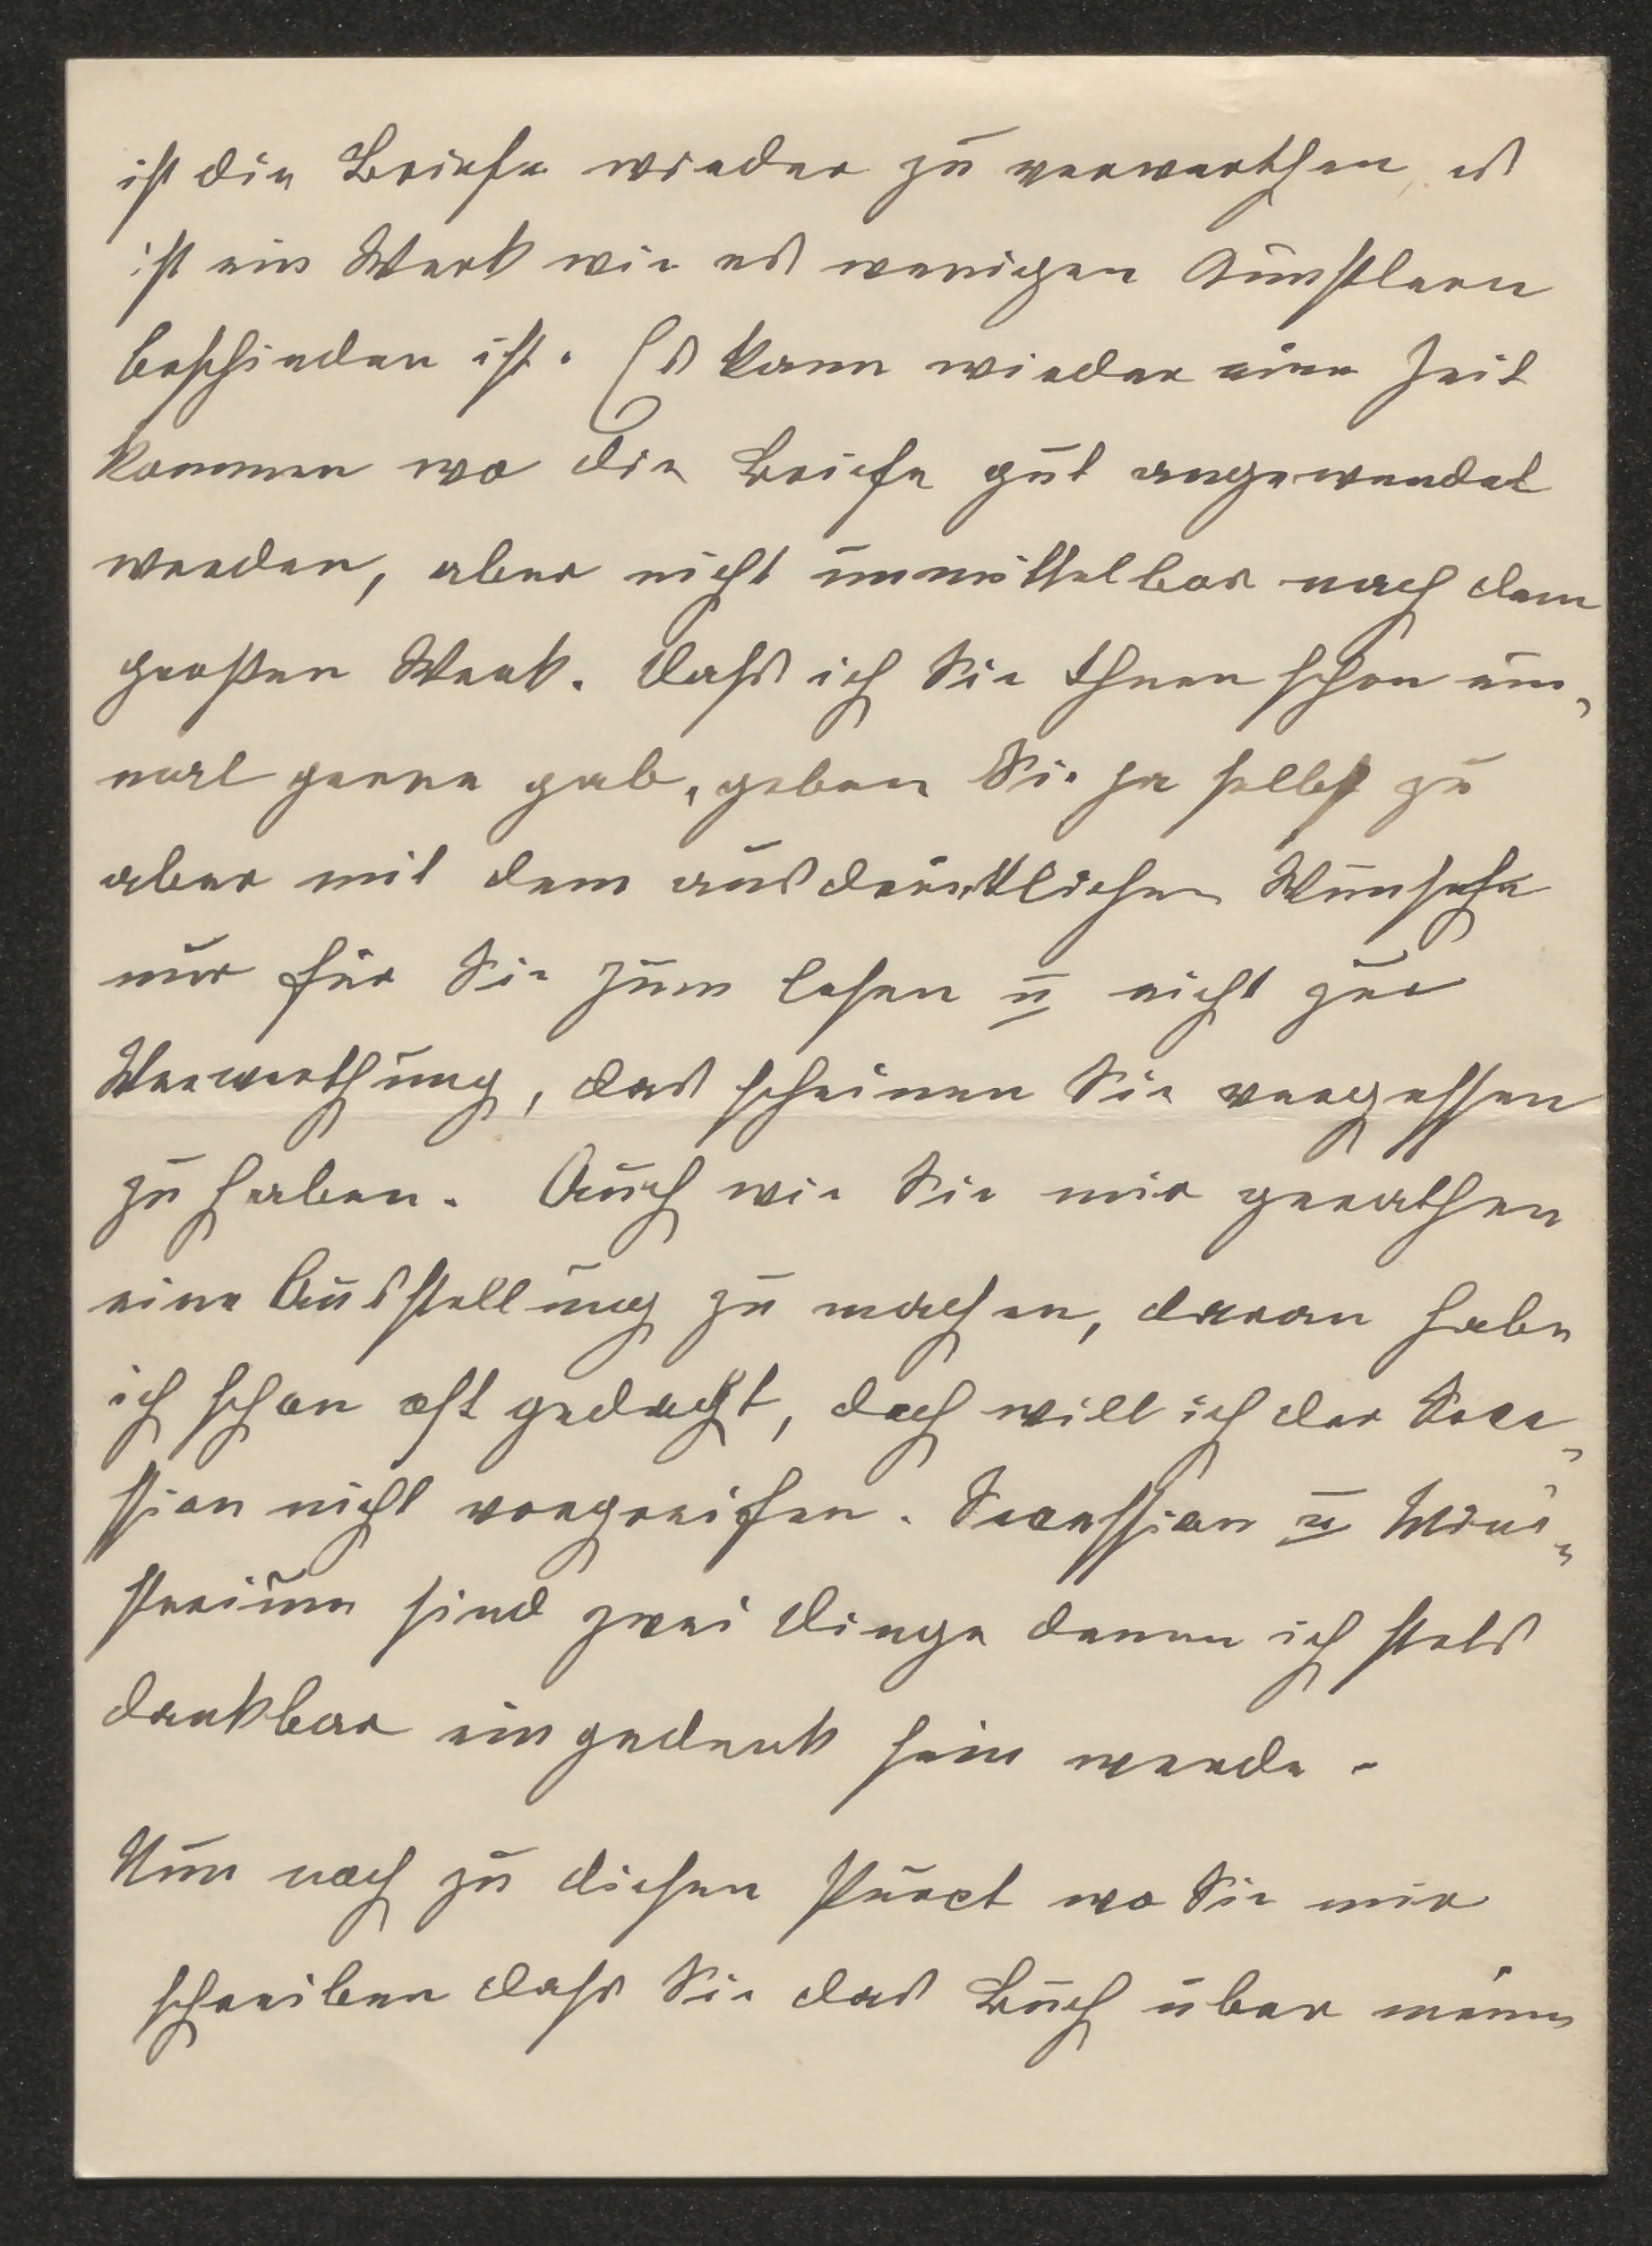 ist die Briefe wieder zu verwerthen, es
ist ein Werk wie es wenigen Künstlern
beschieden ist. Es kann wieder eine Zeit
kommen wo die Briefe gut angewendet
werden, aber nicht unmittelbar nach dem
großen Werk. Dass ich Sie Ihnen schon ein„
mal gerne gab, geben Sie ja selbst zu
aber mit dem ausdrücklichen Wunsche
nur für Sie zum lesen u nicht zur
Verwerthung, das scheinen Sie vergessen
zu haben. Auch wie Sie mir gerathen
eine Ausstellung zu machen, daran habe
ich schon oft gedacht, doch will ich der Sece„
ssion nicht vorgreifen. Secession u Mini„
sterium sind zwei Dinge denen ich stets
dankbar eingedenk sein werde.
Nun noch zu diesen Punct wo Sie mir
schreiben dass Sie das Buch über meinen